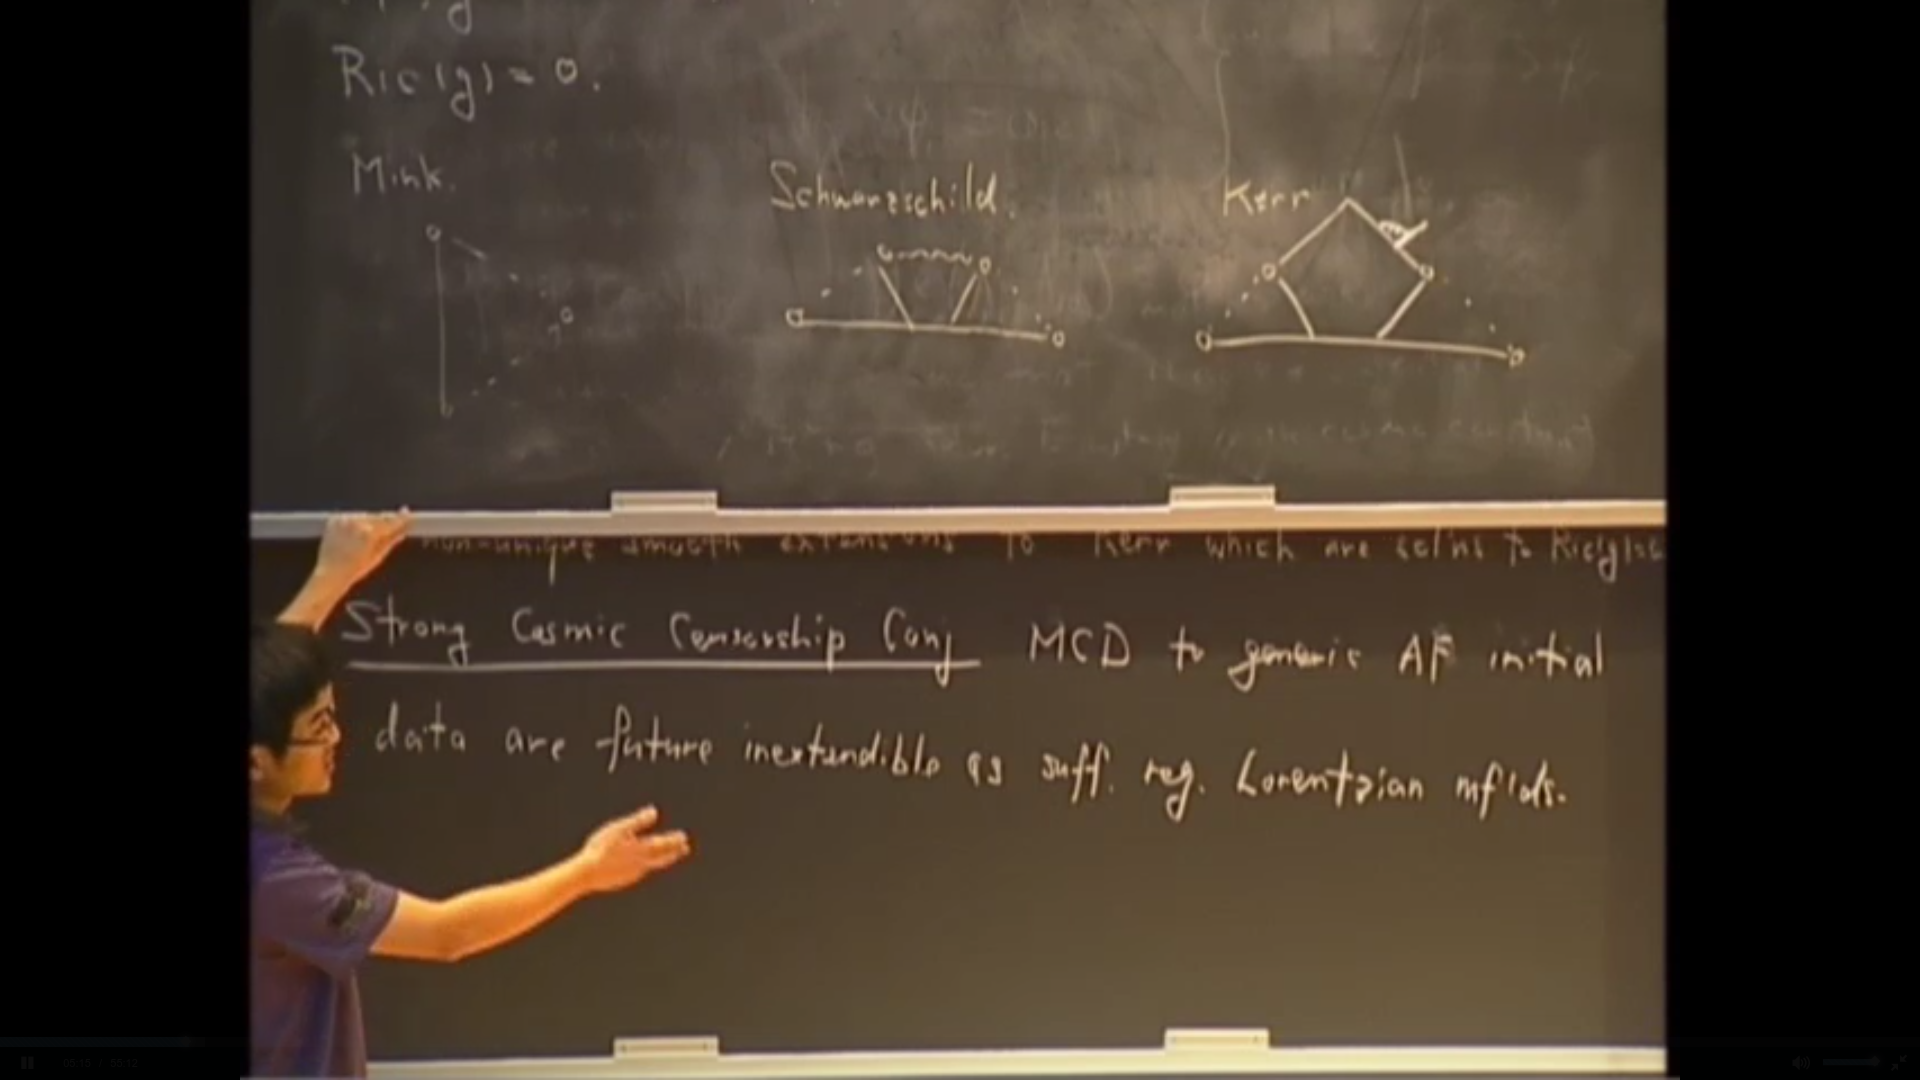 Ric(g) = 0.
Mink.
Schwarzschild.
Kerr
non-unique smooth extensions to Kerr which are solns to Ric(g)=0
Strong Cosmic Censorship Conj MCD to generic AF initial
data are future inextendible as suff. reg. Lorentzian mflds.